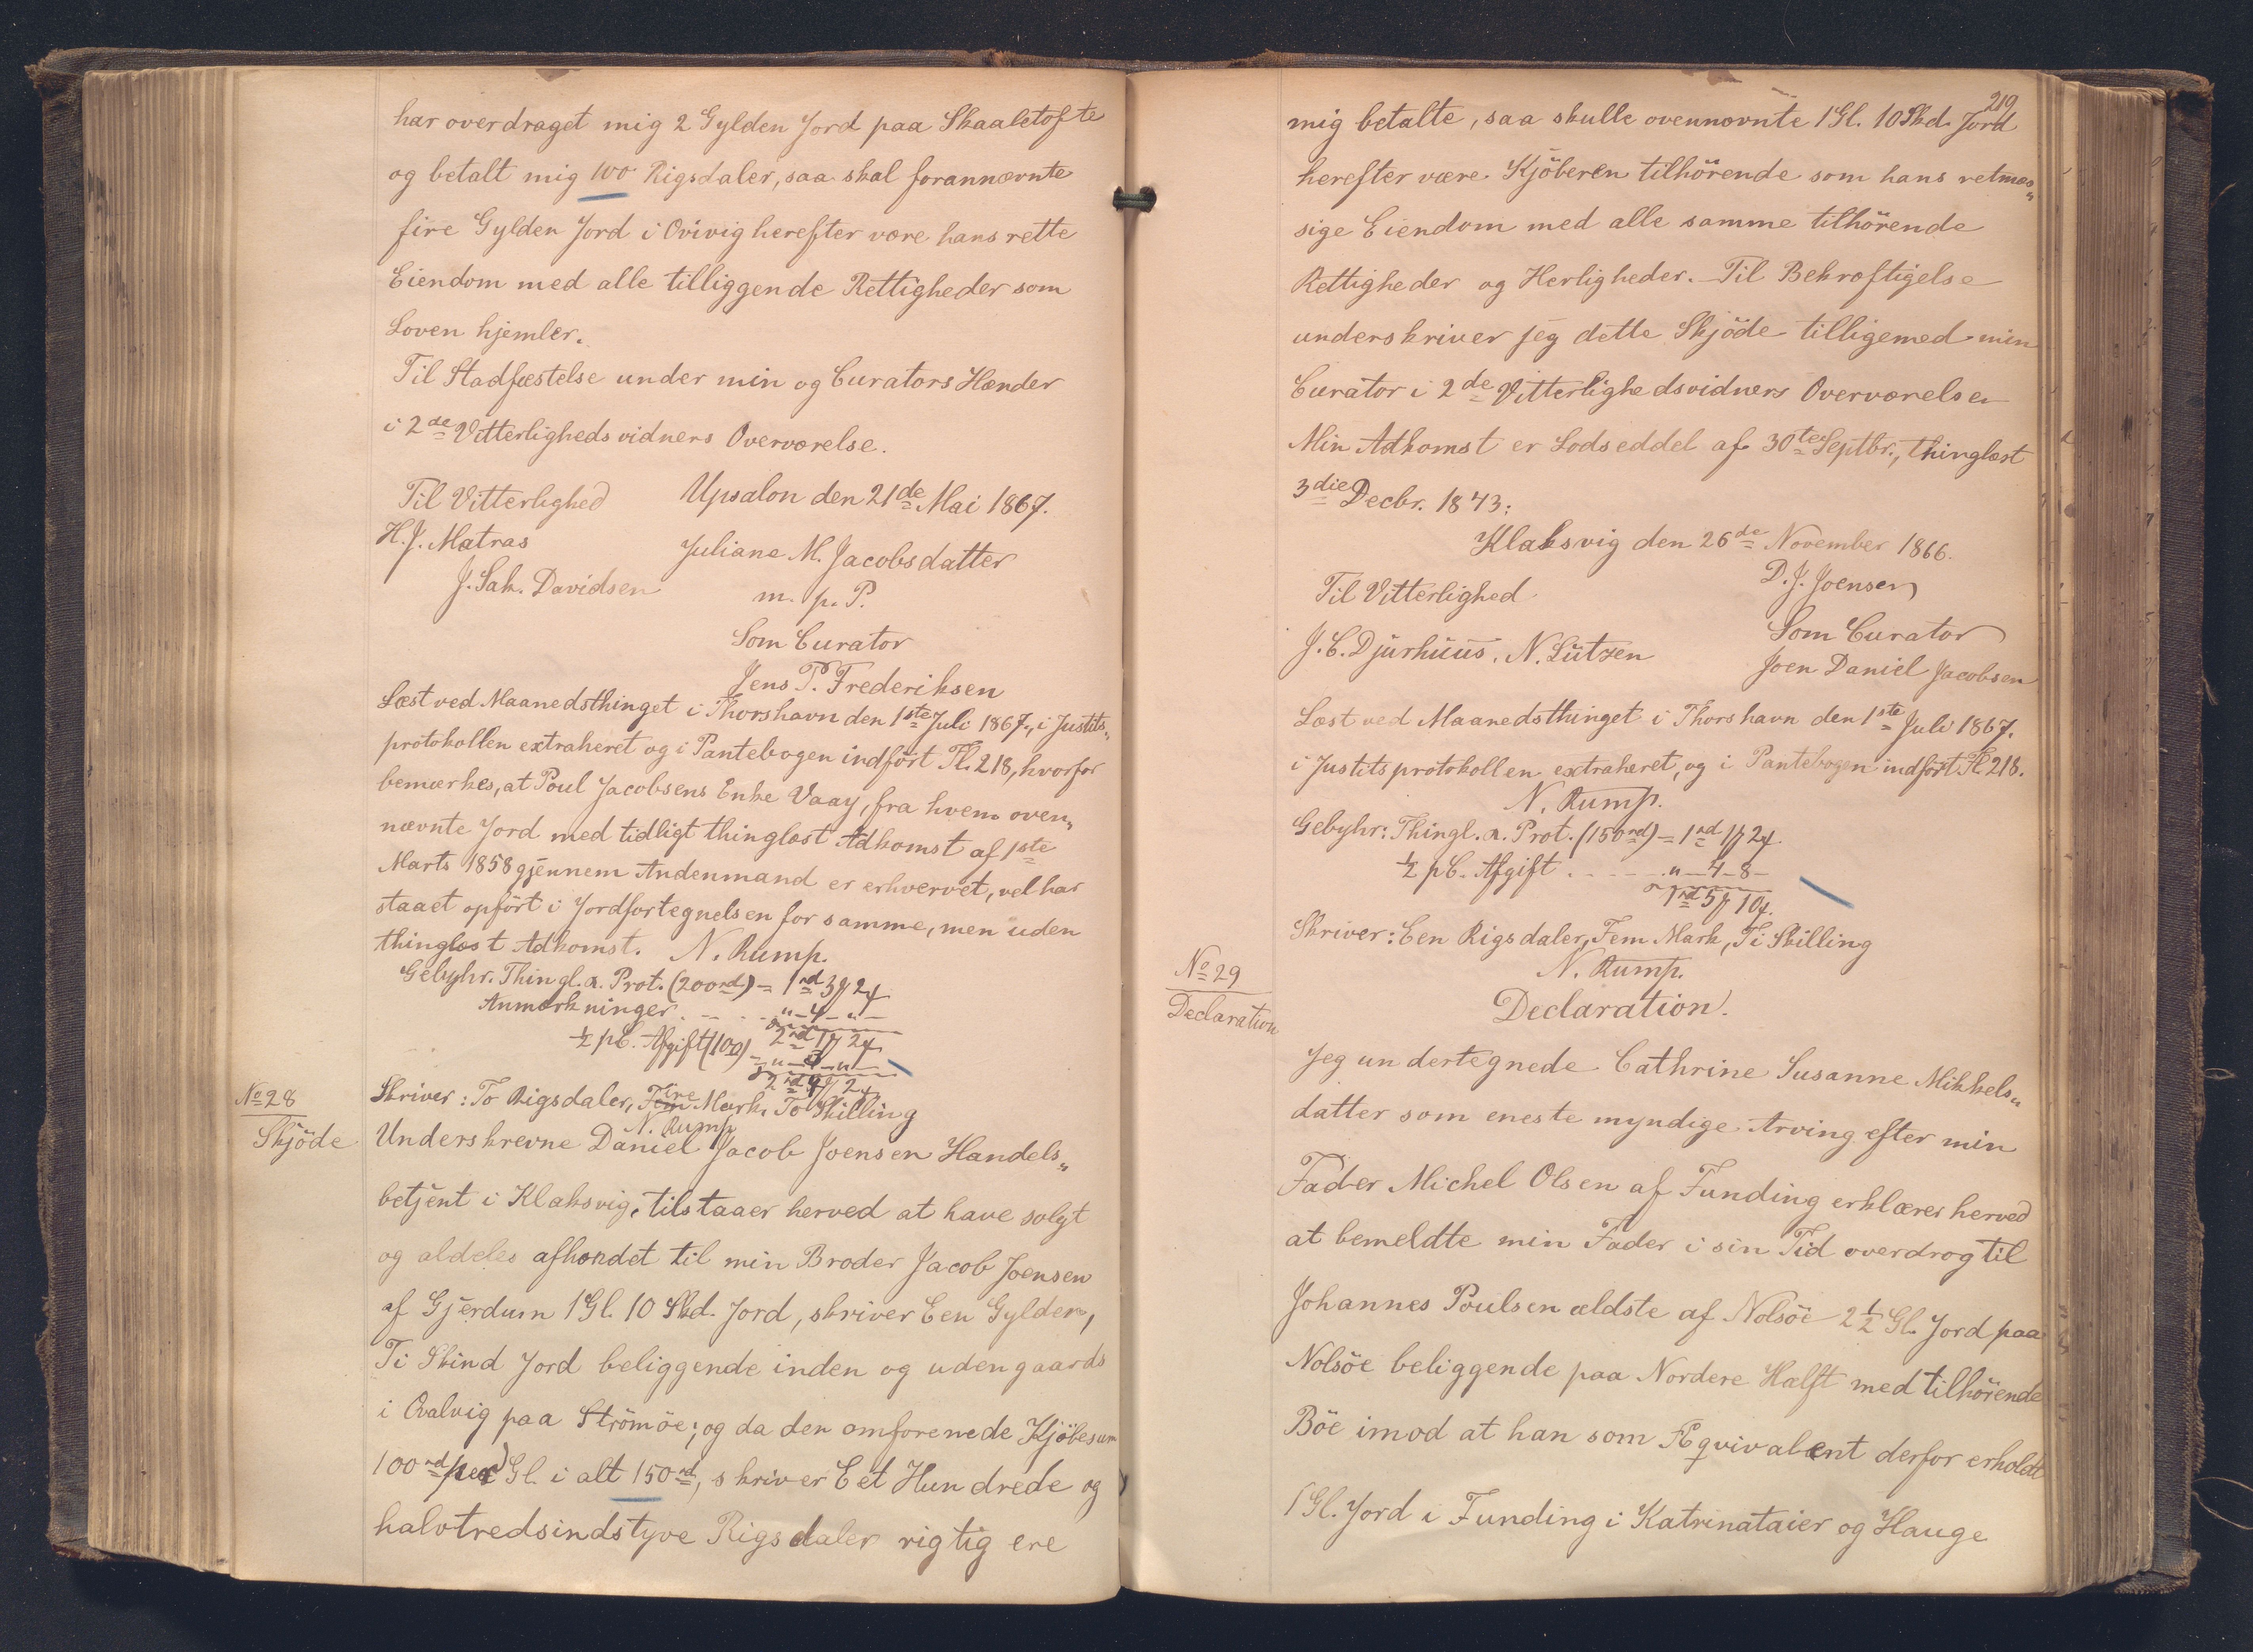 har overdraget mig 2 Gylden Jord paa Skaaletofte
og betalt mig 100 Rigsdaler, saa skal forannævnte
fire Gylden Jord i Øivig herefter være hans rette
Eiendom med alle tilliggende Rettigheder som
Loven hjemler.
Til Stadfæstelse under min og Curators Hænder
i 2de Vitterligheds vidners Overværelse.
Upsalon den 21de Mai 1867.
Til Vitterlighed
H. J. Matras
Juliane M. Jacobsdatter
J. Sak. Davidsen
m. p. P.
Som Curator
Jens P. Frederiksen
Læst ved Maanedsthinget i Thorshavn den 1ste Juli 1867, i Justits„
protokollen extraheret og i Pantebogen indført Fl. 218, hvorfor
bemærkes, at Poul Jacobsens Enke Vaag, fra hvem oven„
nævnte Jord med tidligt thinglæst Adkomst af 1ste
Marts 1858 gjennem Andenmand er erhvervet, vel har
staaet opført i Jordfortegnelsen for samme, men uden
thinglæst Adkomst. N. Rump.
Gebyhr. Thingl. a. Prot. (200rd) = 1rd 3 2
Anmærkninger. . . . „ - 4 - „ -
2rd 1 2
½ pC. Afgift (100) = „ - 3 - „ -
2rd 4 2
Skriver: To Rigsdaler, Fem Fire Mark, To Skilling
N. Rump
No 28
Skjöde
Underskrevne Daniel Jacob Joensen Handels„
betjent i Klaksvig, tilstaaer herved at have solgt
og aldeles afhændet til min Broder Jacob Joensen
af Gjerdum 1 Gl. 10 Skd. Jord, skriver Een Gylden,
Ti Skind Jord beliggende inden og udengaards
i Qvalvig paa Strömöe; og da den omforenede Kjöbesum
100rd per Gl. i alt 150rd, skriver Eet Hundrede og
halvtredsindstyve Rigsdaler rigtig ere
219
mig betalte, saa skulle ovennævnte 1 Gl. 10 Skd. Jord
herefter være Kjöberen tilhörende som hans retmæs„
sige Eiendom med alle samme tilhörende
Rettigheder og Herligheder. Til Bekræftigelse
underskriver jeg dette Skjöde tilligemed min
Curator i 2de Vitterlighedsvidners Overværelse
Min Adkomst er Lodseddel af 30te Septbr., thinglæst
3die Decbr. 1843:
Klaksvig den 26de November 1866.
D. J. Joensen
Til Vitterlighed
Som Curator
J. C. Djurhuus, N. Lützen
Joen Daniel Jacobsen
Læst ved Maanedsthinget i Thorshavn den 1ste Juli 1867.
i Justitsprotokollen extraheret, og i Pantebogen indført Fl 218.
N. Rump.
Gebyhr: Thingl. a. Prot. (150rd) = 1rd 1 2
½ pC. Afgift . . . . „ - 4 - 8 -
1rd 5 10
Skriver: Een Rigsdaler, Fem Mark, Ti Skilling
N. Rump.
No 29
Declaration
Declaration.
Jeg undertegnede Cathrine Susanne Mikkels„
datter som eneste myndige Arving efter min
Fader Michel Olsen af Funding erklærer herved
at bemeldte min Fader i sin Tid overdrog til
Johannes Poulsen ældste af Nolsöe 2½ Gl. Jord paa
Nolsöe beliggende paa Nordere Hælft med tilhörende
Böe imod at han som Æqvivalent derfor erholdt
1 Gl. Jord i Funding i Katrinataier og Hauge